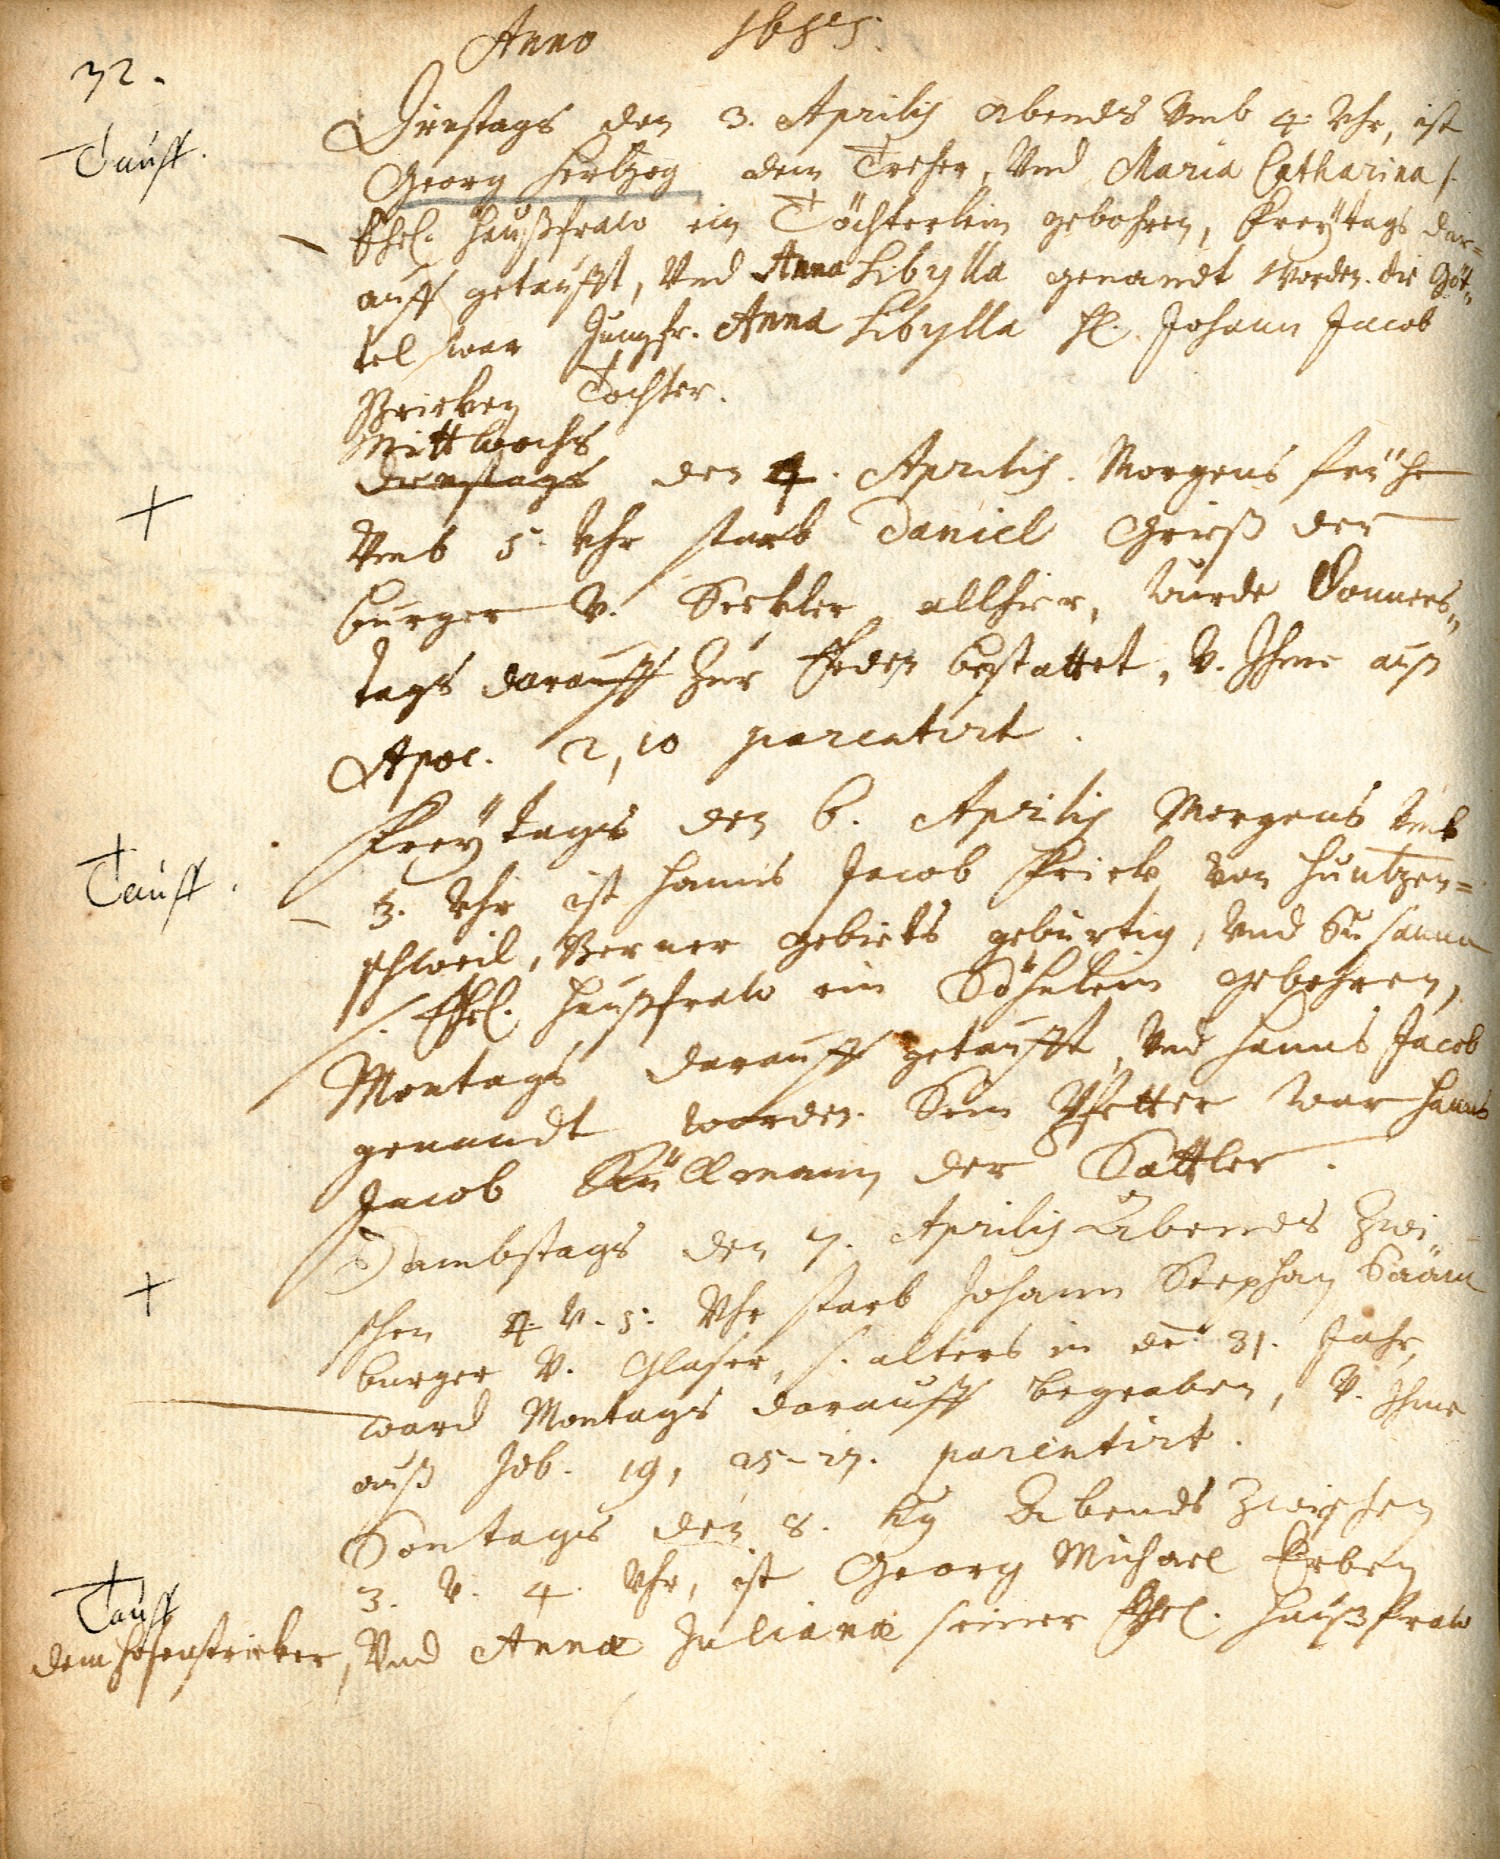 Anno 1683.
32.
Dinstags den 3. Aprilis abends Umb 4. Uhr, ist
Tauff.
Georg Hertzog dem Dreher, Und Maria Catharina s.
Ehel. Haußfraw ein Töchterlein gebohren, Freytags dar=
auff getaufft, Und Anna Sibylla genandt worden. die Göt=
tel war Jungfr. Anna Sibylla H. Johann Jacob
Tochter.
Mittwochs
dienstags den 4. Aprilis. Morgens frühe
+
Umb 5. Uhr starb Daniel Grieß der
burger V. Seckler allhier, wurde Donners=
tags darauff zur Erden bestattet, V. Ihme auß
Apoc. 2, 10 parentirt.
Freytags den 6. Aprilis Morgens Umb
Tauff.
3. Uhr ist Hanns Jacob Frick von Huntzen=
schweil, Berner gebiets gebürtig, Und Susanna
s. Ehel. Haußfraw ein Söhnlein gebohren,
Montags darauff getaufft, Und Hanns Jacob
genandt worden. Sein Pfetter war Hanns
Jacob Küllmann der Sattler.
Sambstags den 7. Aprilis Abends Zwi=
+
schen 4. V. 5. Uhr starb Johann Stephan
burger V. Glaser, s. alters in de: 31. Jahr,
ward Montags darauff begraben, V. Ihme
auß Job. 19, 25-27. parentirt.
Sontags den 8. Abends Zwischen
3. V. 4. Uhr, ist Georg Michael Erben
Tauff
dem Hosenstricker, Und Annæ Julianæ seiner Ehel. Haußfraw